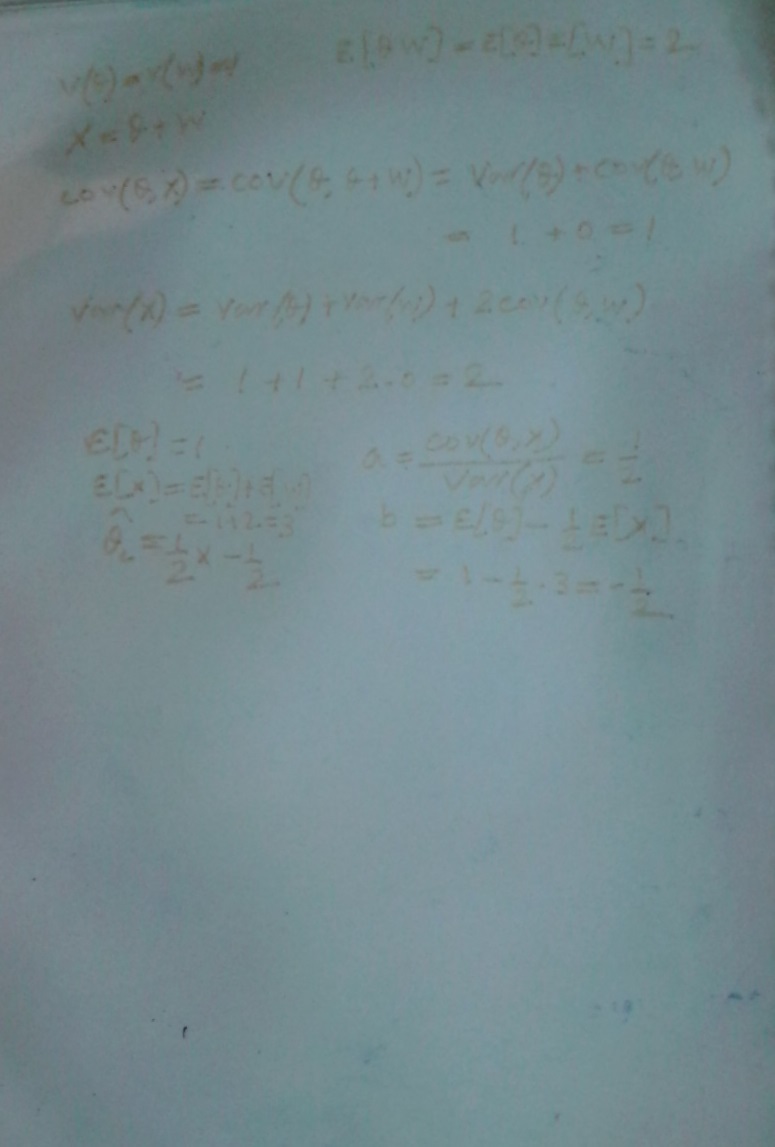 E[θW] = E[θ]E[W] = 2
V(θ) = V(W) = 1
X = θ + W
cov(θ, X) = cov(θ, θ + W) = Var(θ) + cov(θ, W)
= 1 + 0 = 1
Var(X) = Var(θ) + Var(W) + 2cov(θ, W)
= 1 + 1 + 2 · 0 = 2
E[θ] = 1
E[X] = E[θ] + E[W]
= 1 + 2 = 3
θ̂_L = 1/2 X - 1/2
a = cov(θ, X)/Var(X) = 1/2
b = E[θ] - 1/2 E[X]
= 1 - 1/2 · 3 = -1/2